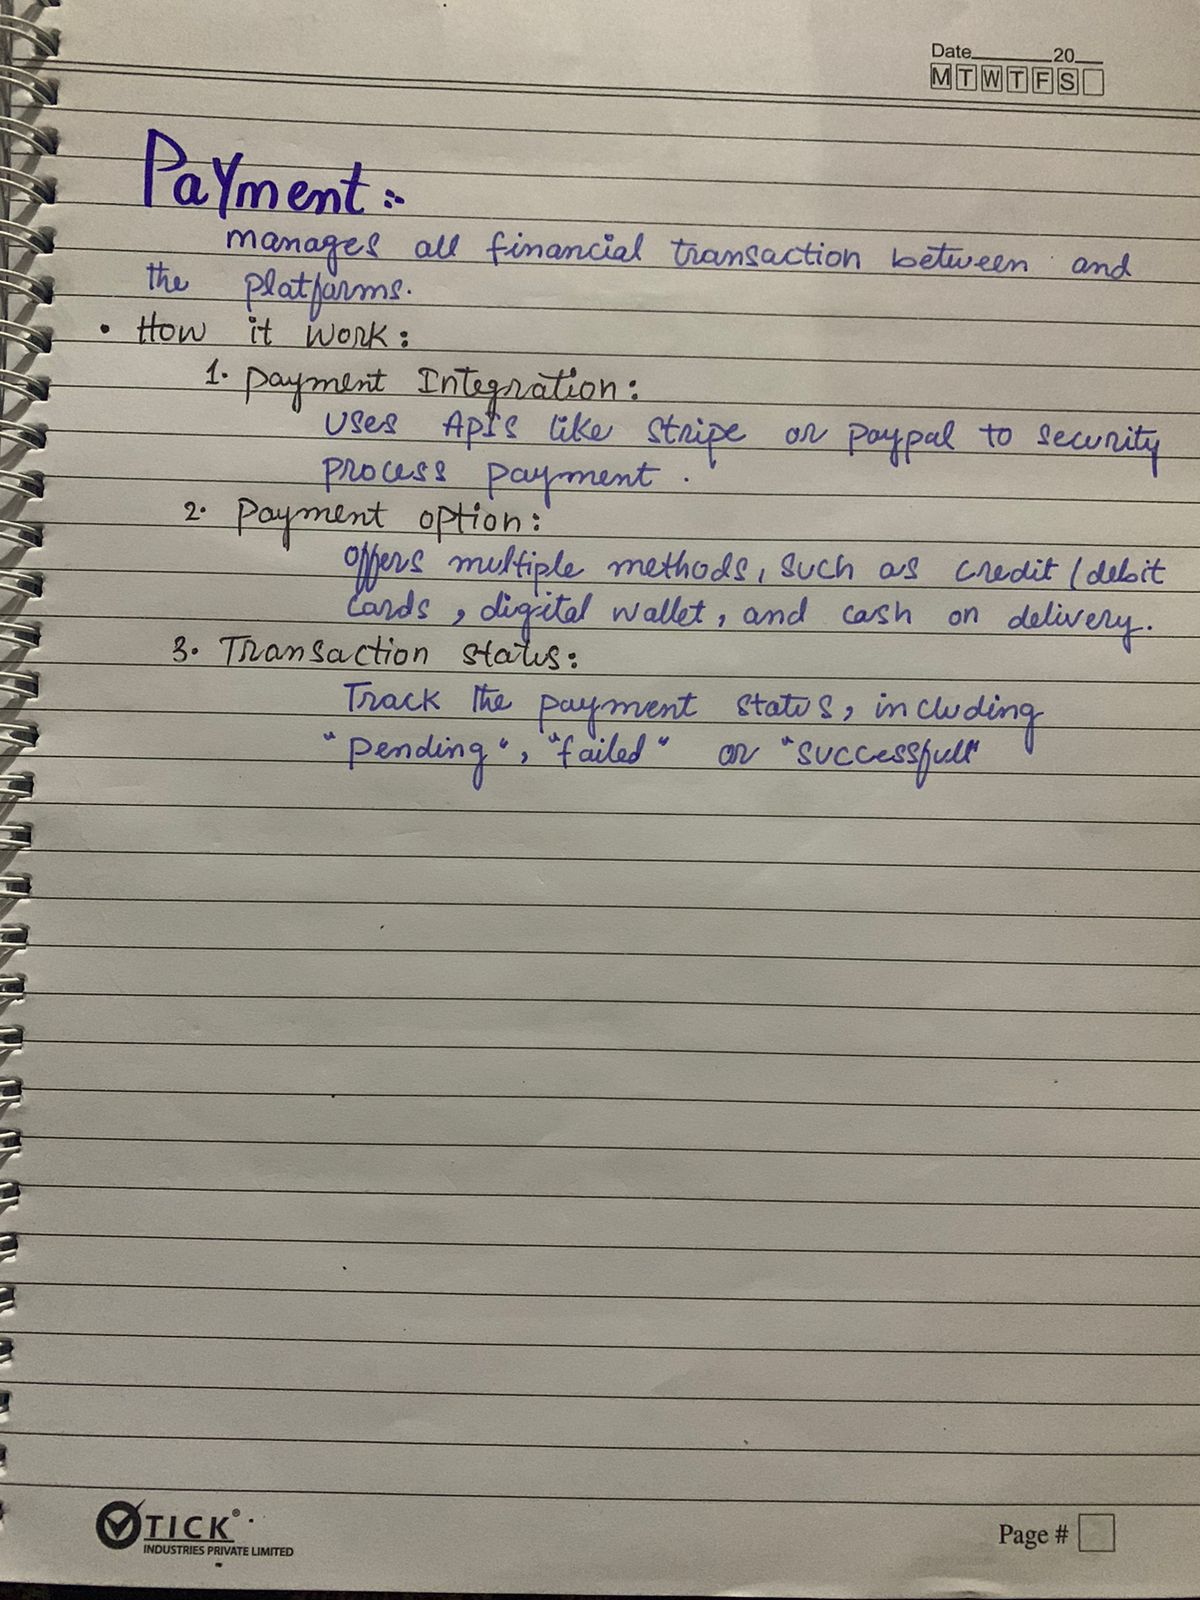 Date 20
M T W T F S
Payment :-
manages all financial transaction between and
the platforms.
• How it work :
1. payment Integration :
uses APIs like stripe or paypal to security
process payment .
2. payment option :
offers multiple methods, such as credit / debit
cards , digital wallet , and cash on delivery.
3. Transaction status :
Track the payment status, including
"pending", "failed" or "successfull"
TICK®
INDUSTRIES PRIVATE LIMITED
Page #